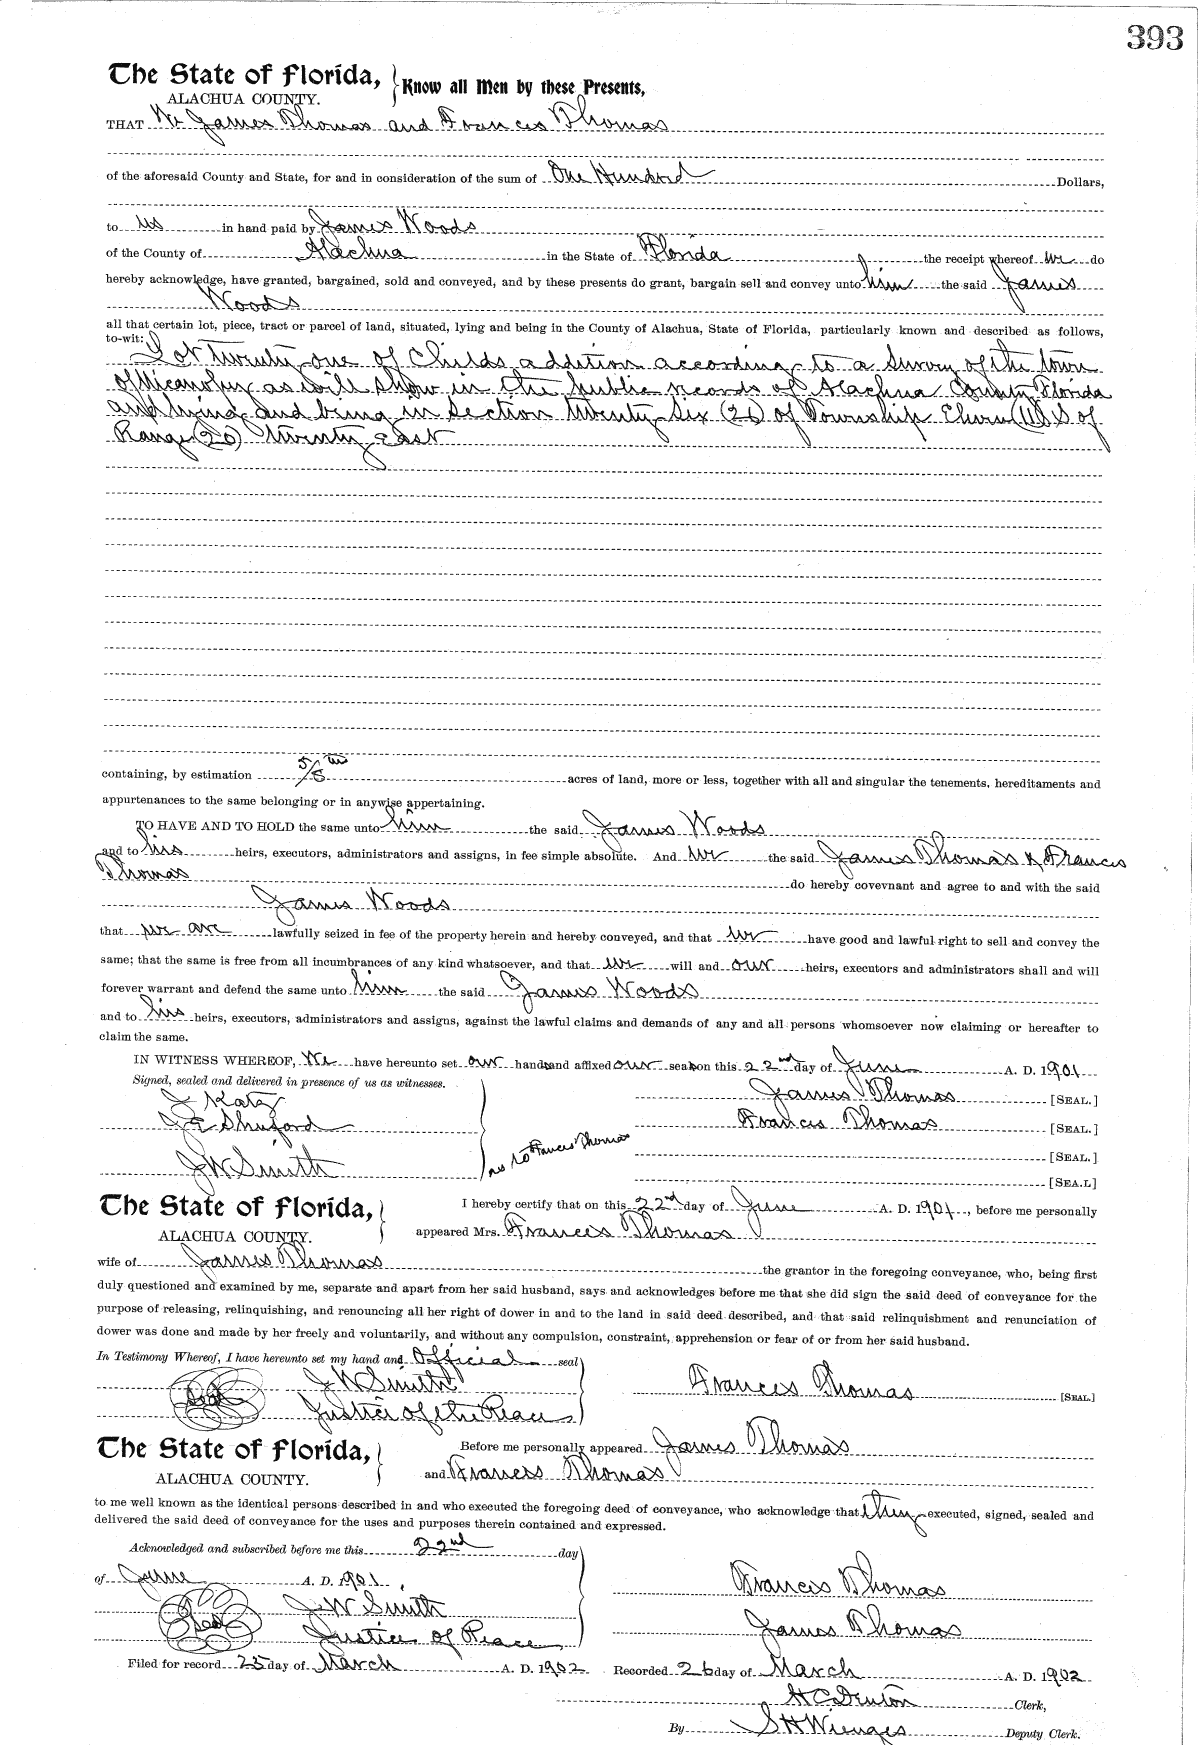 393
The State of Florida, Know all Men by these Presents,
ALACHUA COUNTY.
THAT We James Thomas and Frances Thomas
of the aforesaid County and State, for and in consideration of the sum of One Hundred Dollars,
to us in hand paid by James Woods
of the County of Alachua in the State of Florida the receipt whereof we do
hereby acknowledge, have granted, bargained, sold and conveyed, and by these presents do grant, bargain sell and convey unto him the said James
Woods
all that certain lot, piece, tract or parcel of land, situated, lying and being in the County of Alachua, State of Florida, particularly known and described as follows,
to-wit:
Lot twenty one of Childs addition according to a Survey of the town
of Micanopy as will show in the public records of Alachua County Florida
and lying and being in Section twenty Six (26) of Township Eleven (11) S of
Range (20) twenty east
containing, by estimation 5/8 acres of land, more or less, together with all and singular the tenements, hereditaments and
appurtenances to the same belonging or in anywise appertaining.
TO HAVE AND TO HOLD the same unto him the said James Woods
and to his heirs, executors, administrators and assigns, in fee simple absolute. And we the said James Thomas & Frances
Thomas do hereby covevnant and agree to and with the said
James Woods
that we are lawfully seized in fee of the property herein and hereby conveyed, and that we have good and lawful right to sell and convey the
same; that the same is free from all incumbrances of any kind whatsoever, and that we will and our heirs, executors and administrators shall and will
forever warrant and defend the same unto him the said James Woods
and to his heirs, executors, administrators and assigns, against the lawful claims and demands of any and all persons whomsoever now claiming or hereafter to
claim the same.
IN WITNESS WHEREOF, We have hereunto set our hands and affixed our seals on this 22nd day of June A. D. 1901
Signed, sealed and delivered in presence of us as witnesses. James Thomas [SEAL.]
J Katz
J E Shuford Francis Thomas [SEAL.]
as to Frances Thomas [SEAL.]
J W Smith [SEA.L]
The State of Florida, I hereby certify that on this 22nd day of June A. D. 1901, before me personally
ALACHUA COUNTY. appeared Mrs. Frances Thomas
wife of James Thomas the grantor in the foregoing conveyance, who, being first
duly questioned and examined by me, separate and apart from her said husband, says and acknowledges before me that she did sign the said deed of conveyance for the
purpose of releasing, relinquishing, and renouncing all her right of dower in and to the land in said deed described, and that said relinquishment and renunciation of
dower was done and made by her freely and voluntarily, and without any compulsion, constraint, apprehension or fear of or from her said husband.
In Testimony Whereof, I have hereunto set my hand and Official seal
Seal J W Smith Frances Thomas [SEAL]
Justice of the Peace
The State of Florida, Before me personally appeared James Thomas
ALACHUA COUNTY. and Frances Thomas
to me well known as the identical persons described in and who executed the foregoing deed of conveyance, who acknowledge that they executed, signed, sealed and
delivered the said deed of conveyance for the uses and purposes therein contained and expressed.
Acknowledged and subscribed before me this 22nd day
of June A. D. 1901, Francis Thomas
Seal J W Smith
Justice of Peace James Thomas
Filed for record 25 day of March A. D. 1902 Recorded 26 day of March A. D. 1902
H C Denton Clerk,
By S H Wienges Deputy Clerk.